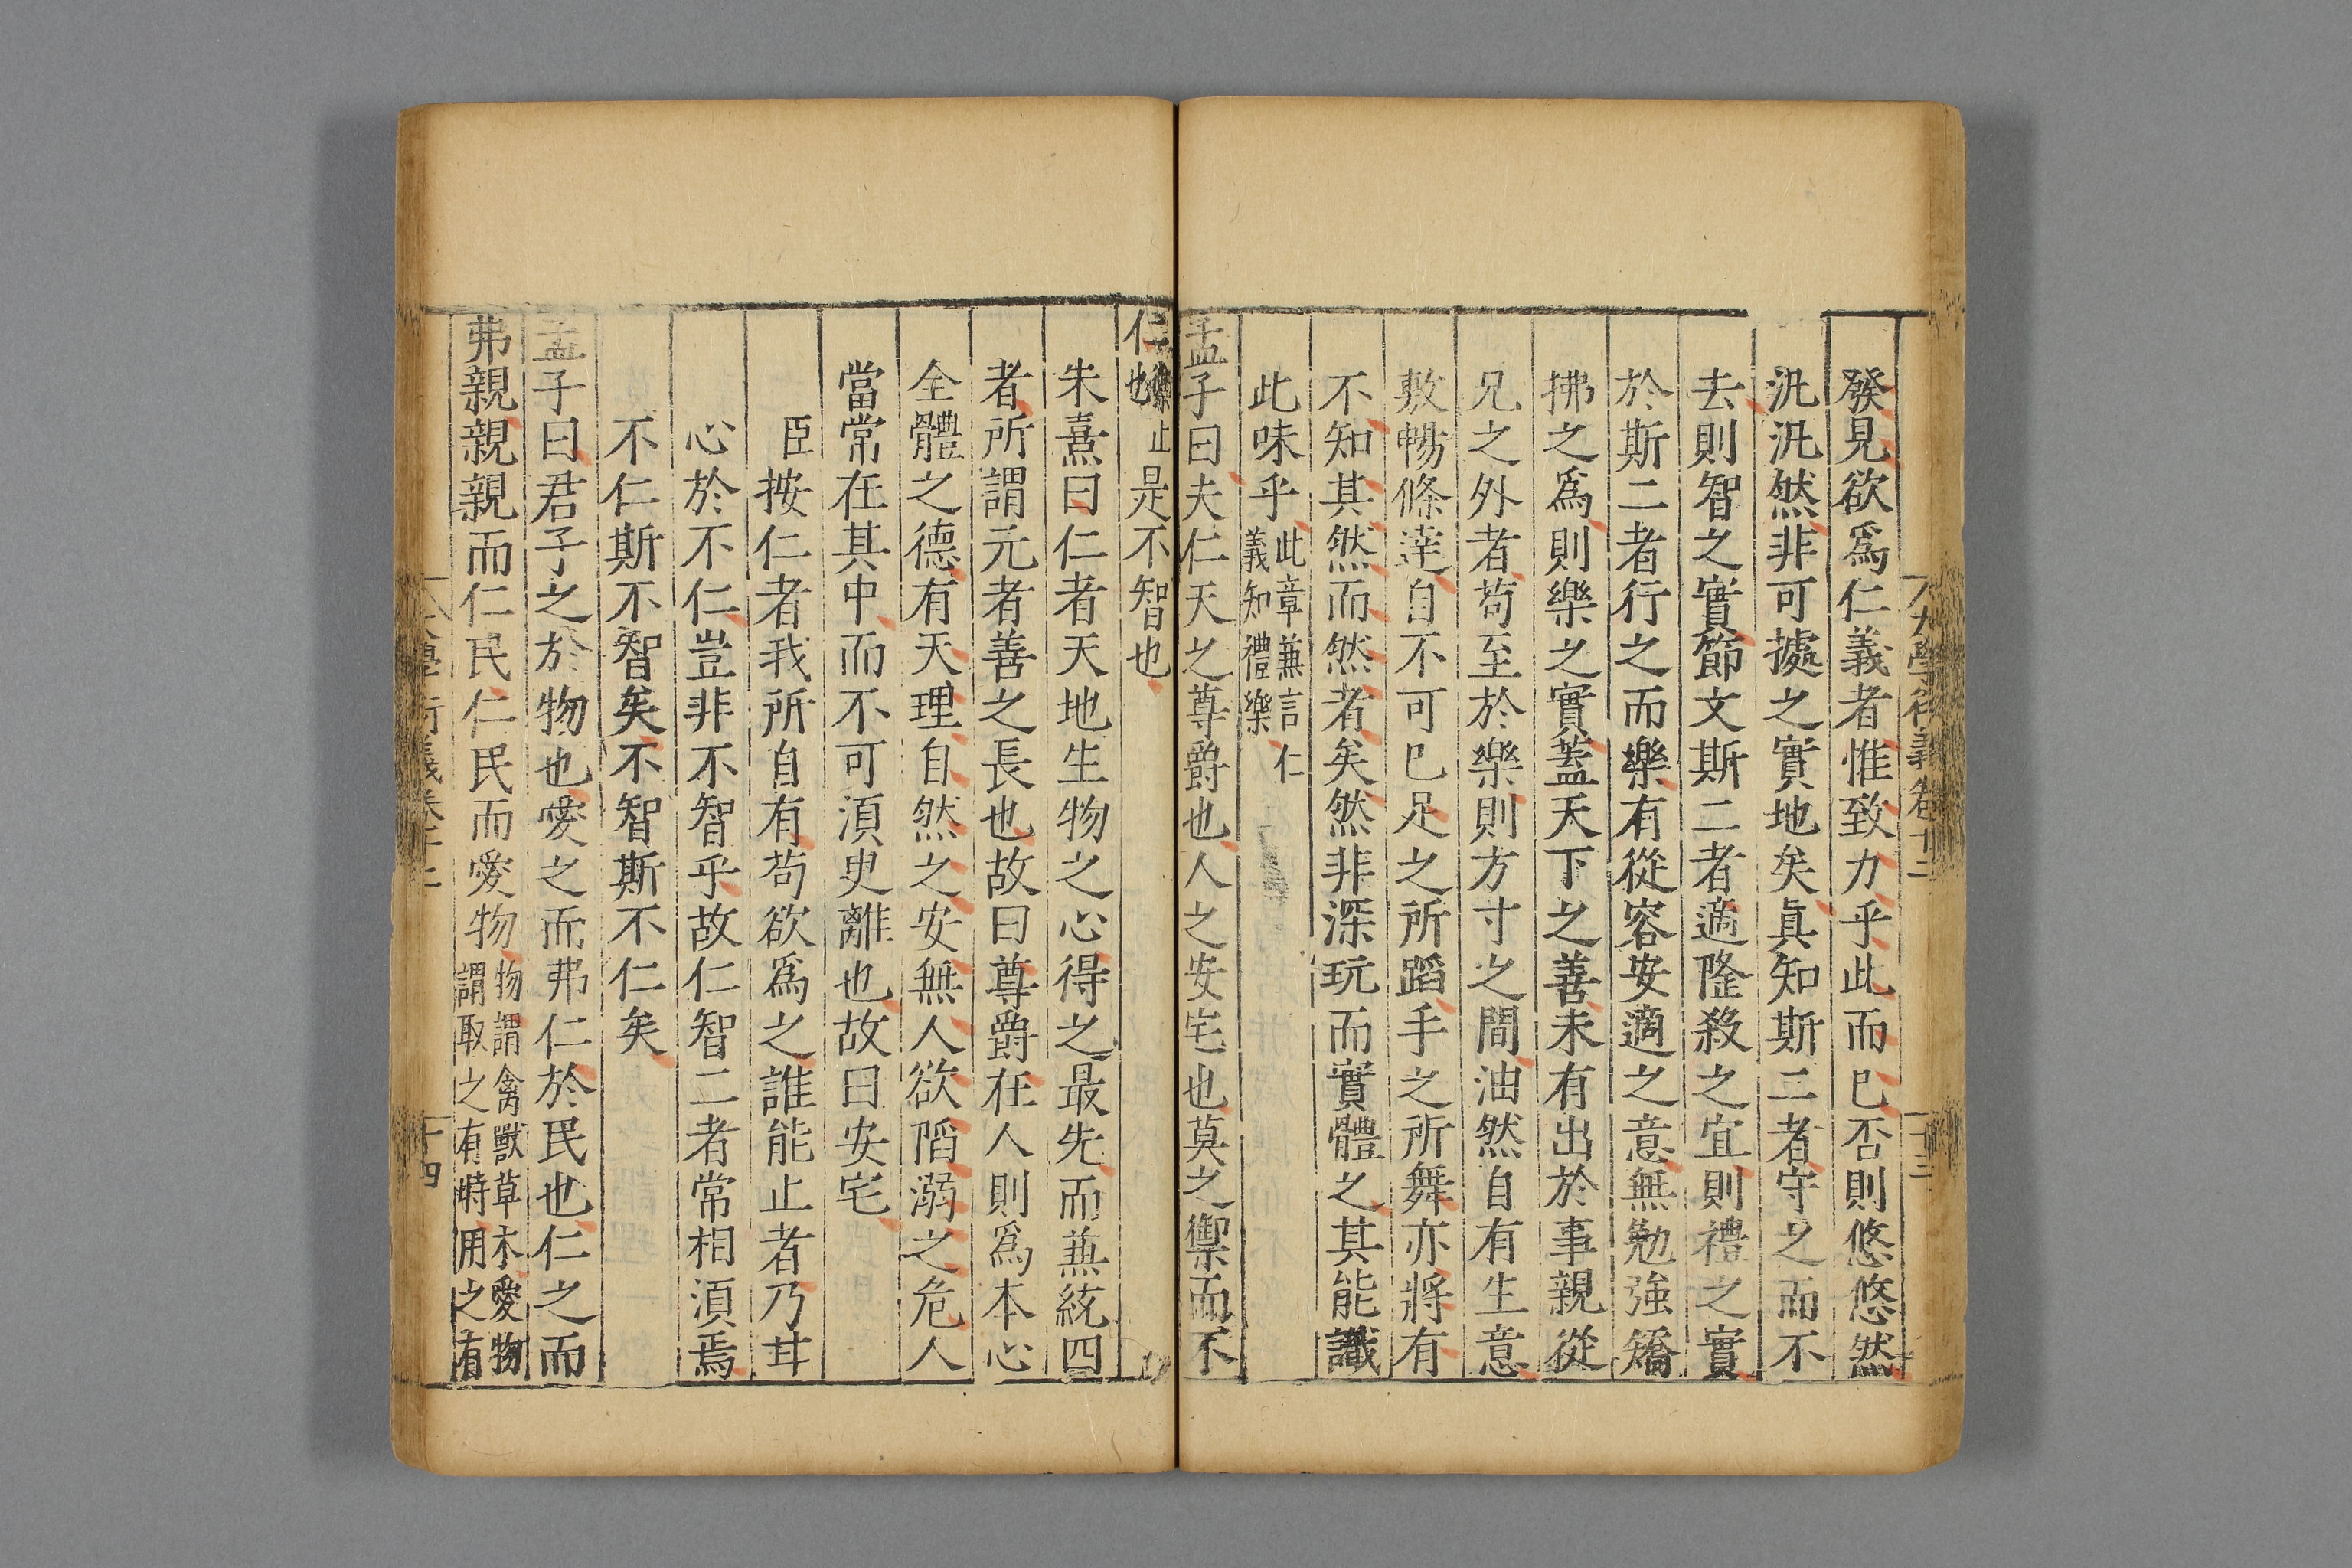 大學衍義卷十二
十三
發見欲爲仁義者惟致力乎此而已否則悠悠然
汎汎然非可據之實地矣眞知斯二者守之而不
去則智之實節文斯二者適隆殺之宜則禮之實
於斯二者行之而樂有從容安適之意無勉強矯
拂之爲則樂之實蓋天下之善未有出於事親從
兄之外者苟至於樂則方寸之間油然自有生意
敷暢條達自不可已足之所蹈手之所舞亦將有
不知其然而然者矣然非深玩而實體之其能識
此味乎此章兼言仁
義知禮樂
孟子曰夫仁天之尊爵也人之安宅也莫之禦而不
仁禦止
也是不智也
朱熹曰仁者天地生物之心得之最先而兼統四
者所謂元者善之長也故曰尊爵在人則爲本心
全體之德有天理自然之安無人欲陷溺之危人
當常在其中而不可須臾離也故曰安宅
臣按仁者我所自有苟欲爲之誰能止者乃甘
心於不仁豈非不智乎故仁智二者常相須焉
不仁斯不智矣不智斯不仁矣
孟子曰君子之於物也愛之而弗仁於民也仁之而
弗親親親而仁民仁民而愛物物謂禽獸草木愛物
謂取之有時用之有
大學衍義卷十二
十四